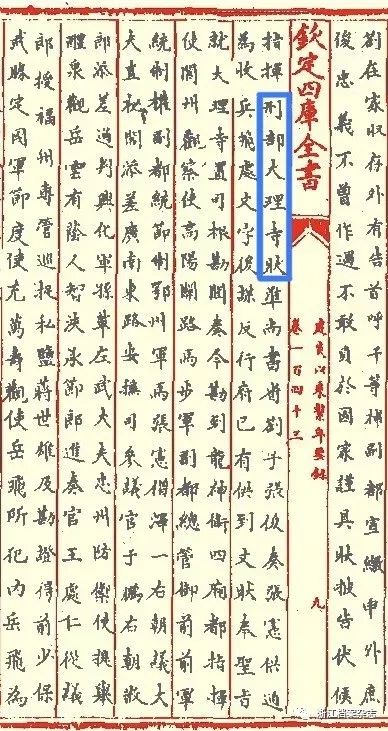 劉在家收存外有告首呼千等補副都宣繳申外庶
俊忠義不曽作過不敢負於國家謹具狀披告伏候
欽定四庫全書
建炎以來繫年要錄
卷一百四十三
九
指揮刑部大理寺狀準尚書省劄子張俊奏張憲供通
為收岳飛處文字後謀反行府已有供到文狀奉聖旨
就大理寺置司根勘聞奏今勘到龍神衛四廂都指揮
使閬州觀察使高陽關路馬步軍副都總管御前前軍
統制權副都統節制鄂州軍馬張憲僧澤一右朝議大
夫直秘閣添差廣南東路安撫司參議官于鵬右朝散
郎添差通判興化軍孫革左武大夫忠州防禦使提舉
醴泉觀岳雲有蔭人智浹承節郎進奏官王處仁從義
郎授福州專管巡捉私鹽蔣世雄及勘證得前少保
武勝定國軍節度使充萬壽觀使岳飛所犯內岳飛為
浙江档案杂志